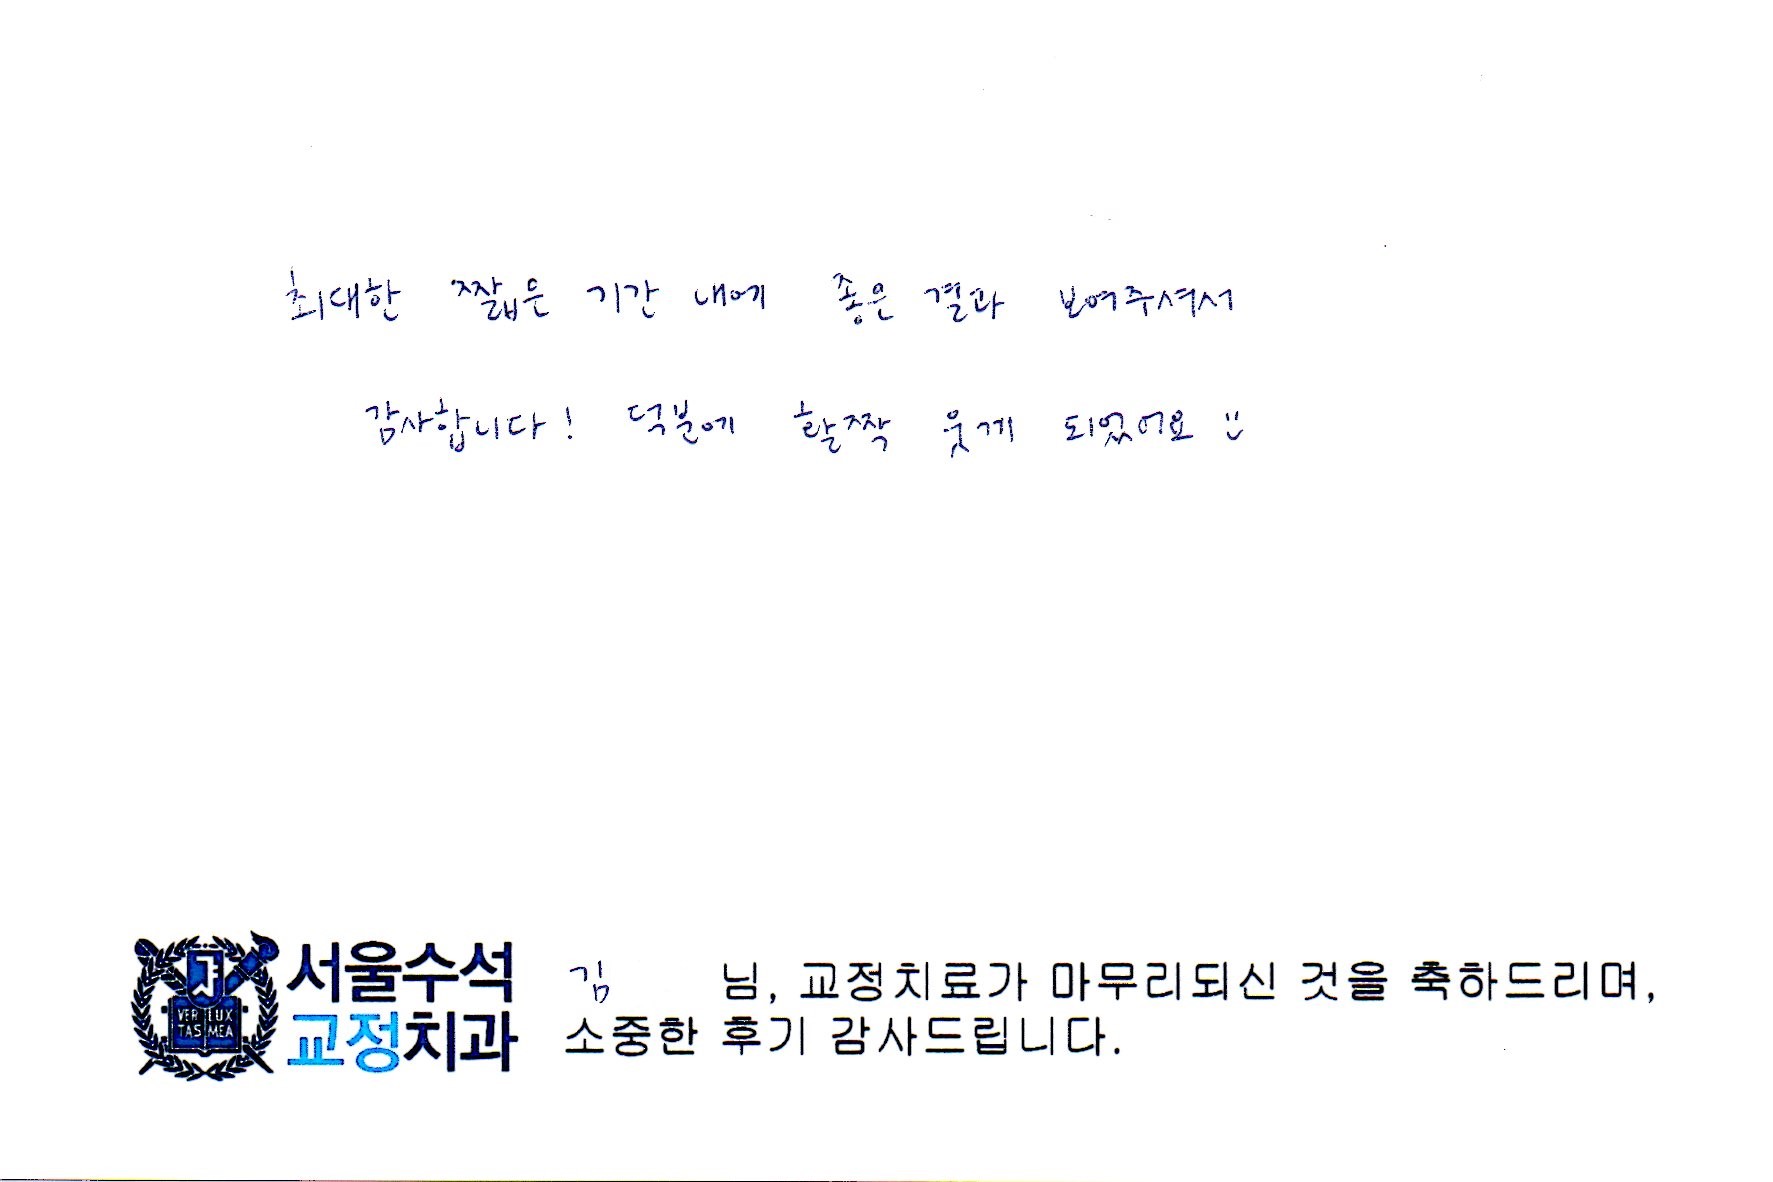 최대한 짧은 기간 내에 좋은 결과 보여주셔서
감사합니다! 덕분에 활짝 웃게 되었어요 :)
서울수석
교정치과
VERI LUX
TAS MEA
김 님, 교정치료가 마무리되신 것을 축하드리며,
소중한 후기 감사드립니다.